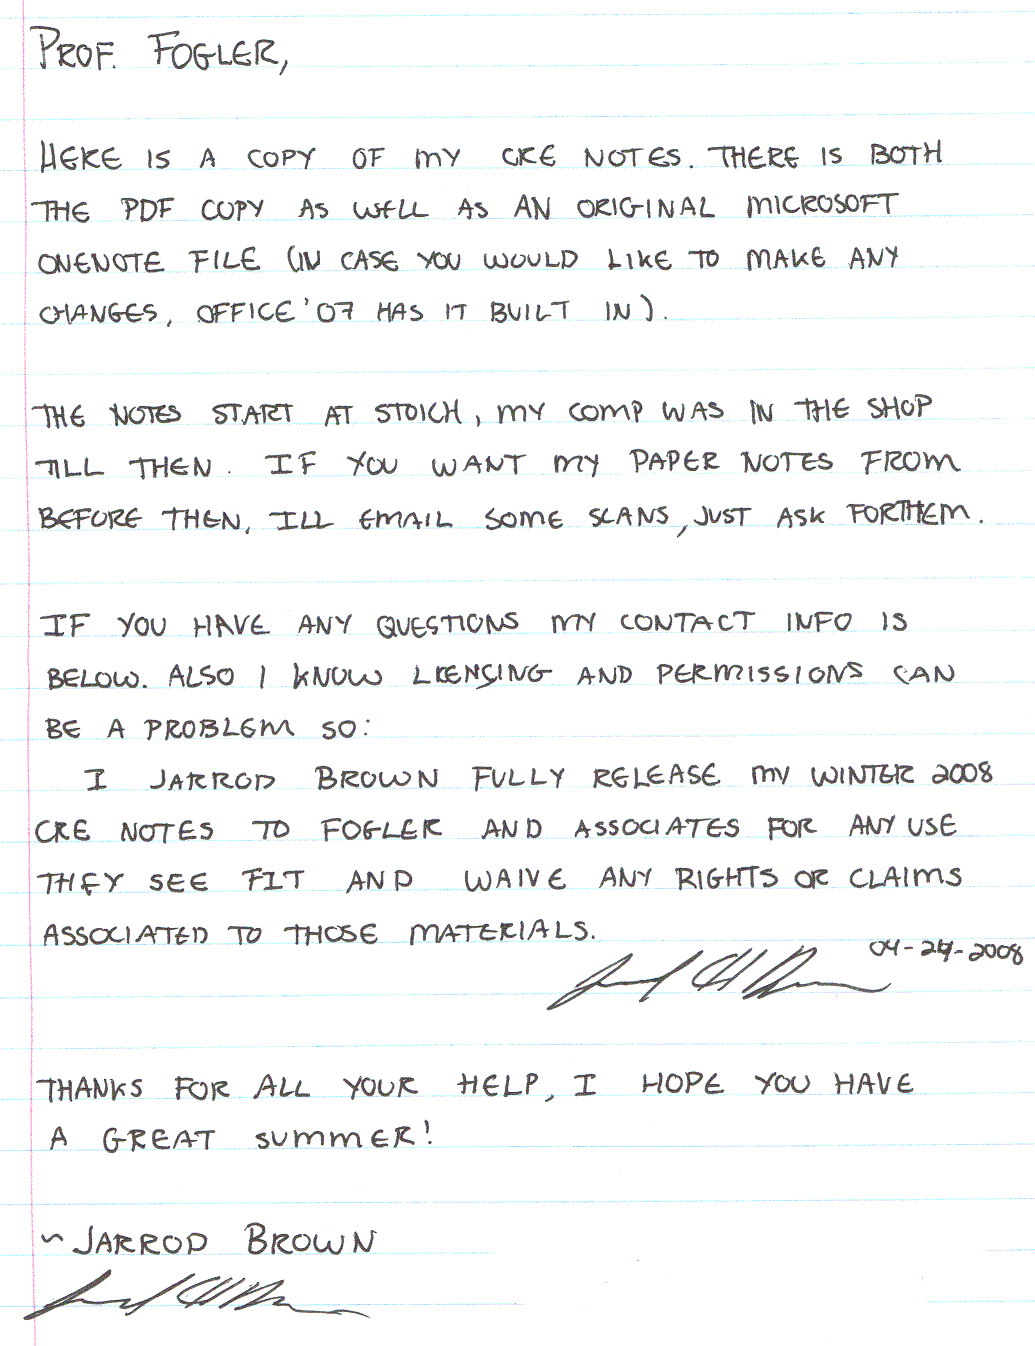 PROF. FOGLER,
HERE IS A COPY OF MY CRE NOTES. THERE IS BOTH
THE PDF COPY AS WELL AS AN ORIGINAL MICROSOFT
ONENOTE FILE (IN CASE YOU WOULD LIKE TO MAKE ANY
CHANGES, OFFICE '07 HAS IT BUILT IN).
THE NOTES START AT STOICH, MY COMP WAS IN THE SHOP
TILL THEN. IF YOU WANT MY PAPER NOTES FROM
BEFORE THEN, ILL EMAIL SOME SCANS, JUST ASK FOR THEM.
IF YOU HAVE ANY QUESTIONS MY CONTACT INFO IS
BELOW. ALSO I KNOW LICENSING AND PERMISSIONS CAN
BE A PROBLEM SO:
I JARROD BROWN FULLY RELEASE MY WINTER 2008
CRE NOTES TO FOGLER AND ASSOCIATES FOR ANY USE
THEY SEE FIT AND WAIVE ANY RIGHTS OR CLAIMS
ASSOCIATED TO THOSE MATERIALS.
04-24-2008
THANKS FOR ALL YOUR HELP, I HOPE YOU HAVE
A GREAT SUMMER!
~ JARROD BROWN